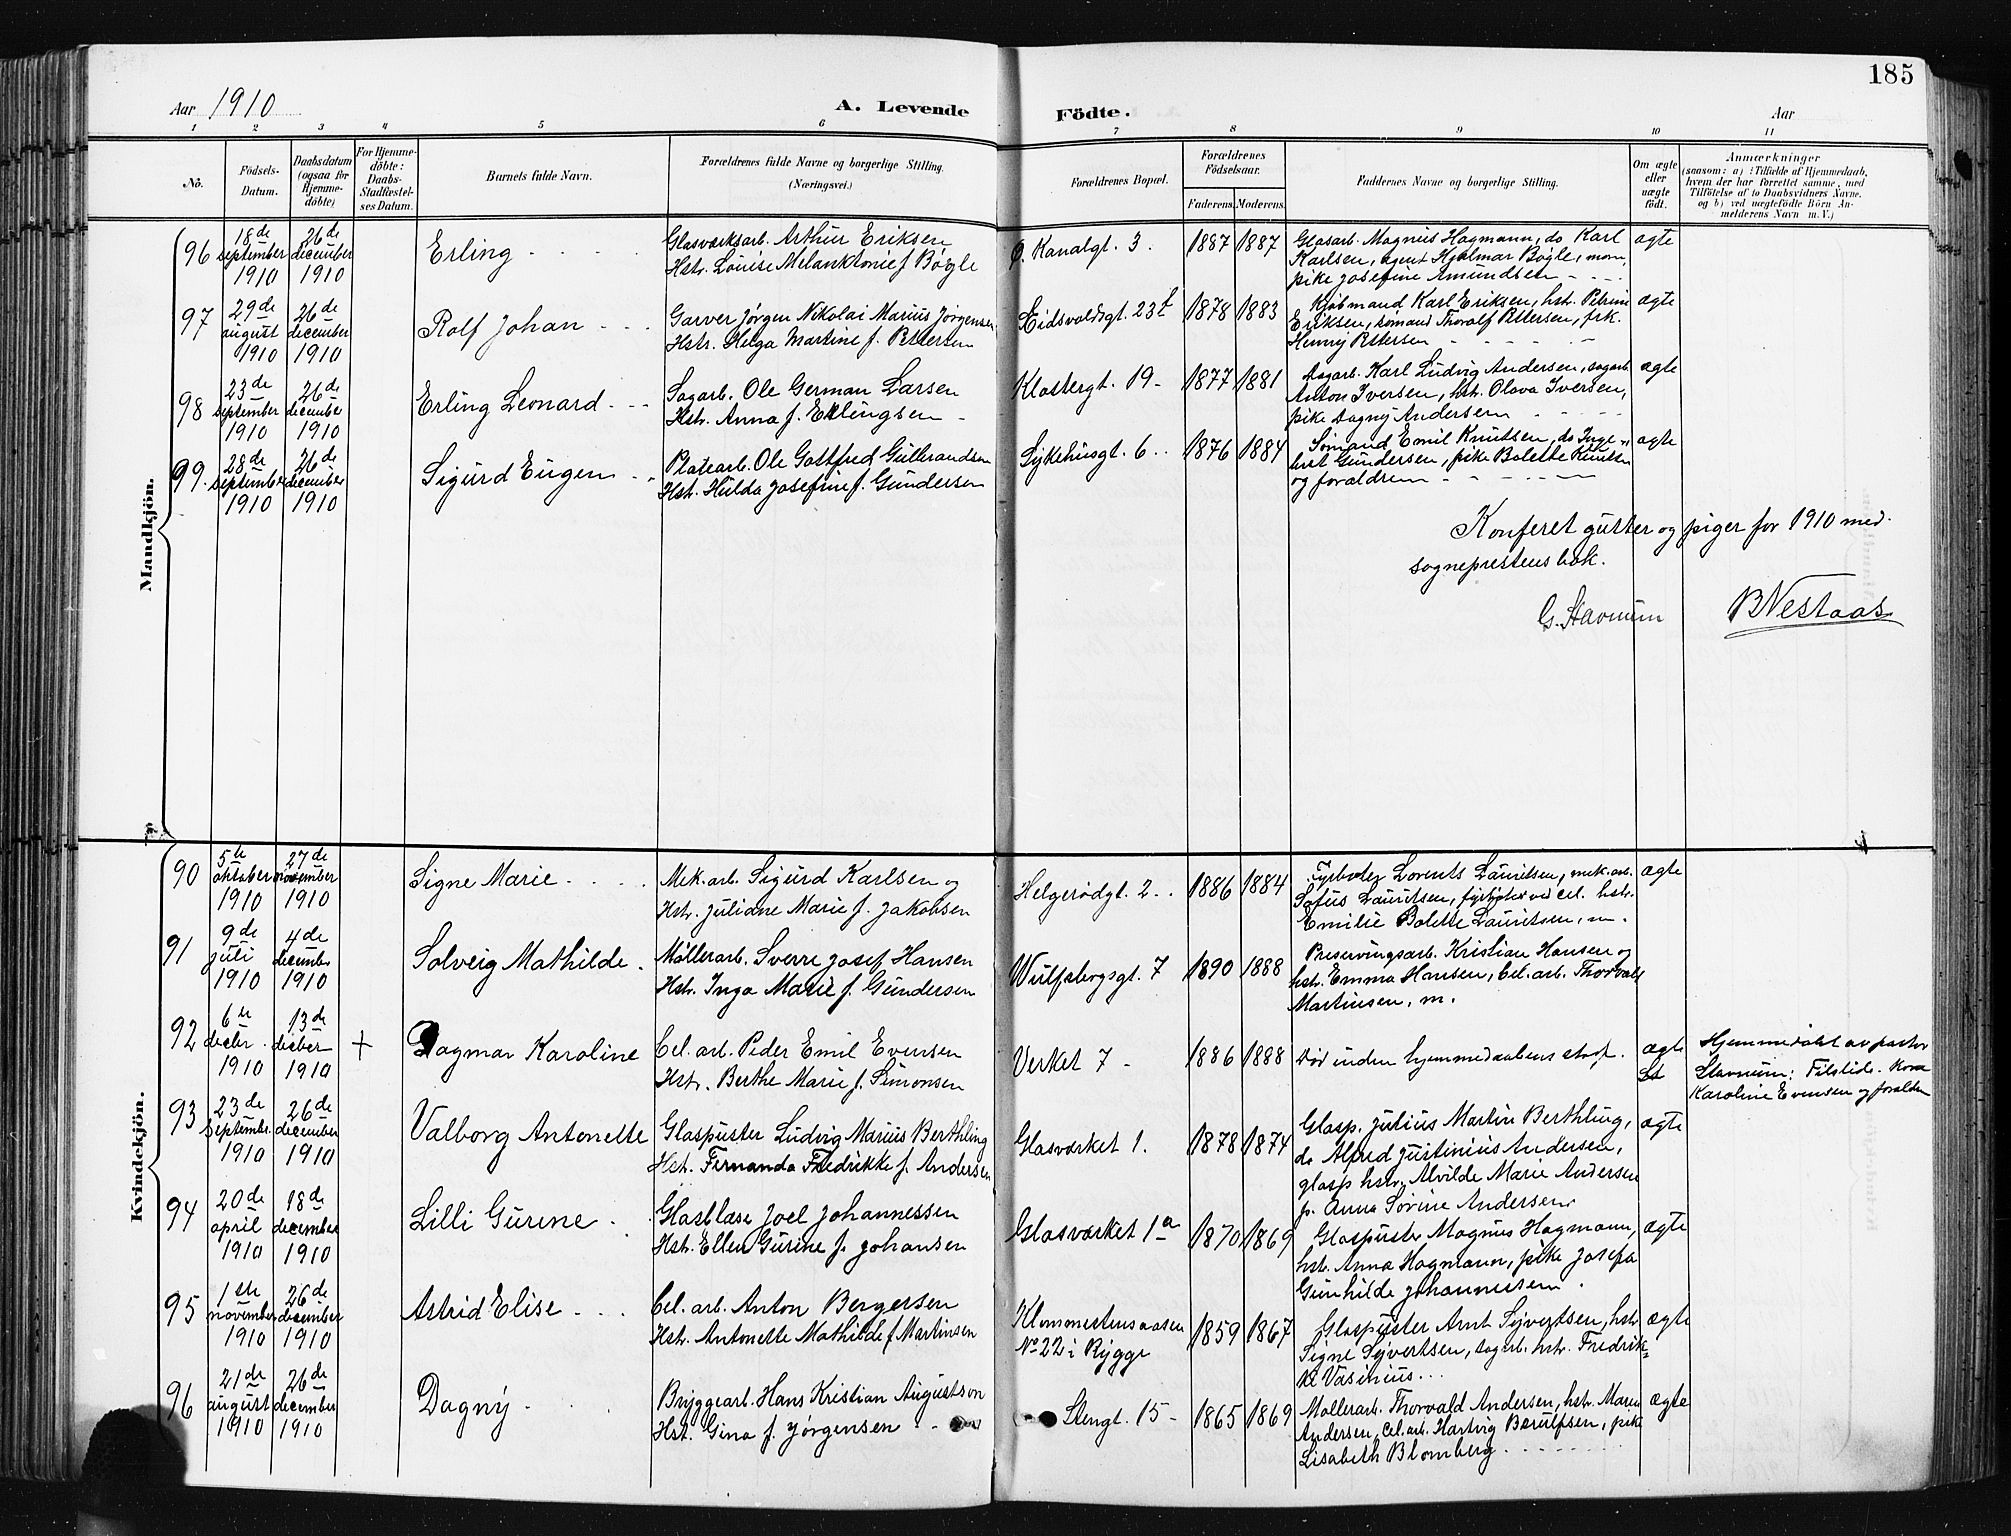 185
Aar 1910
A. Levende
Födte.
Aar
1 2 3 4 5 6 7 8 9 10 11
No.
Födsels-Datum.
Daabsdatum (ogsaa for Hjemme-döbte)
For Hjemme-döbte: Daabs-Stadfæstelses Datum.
Barnets fulde Navn.
Forældrenes fulde Navne og borgerlige Stilling.
(Næringsvei.)
Forældrenes Bopæl.
Forældrenes Födselsaar.
Faderens. Moderens.
Faddernes Navne og borgerlige Stilling.
Om ægte eller uægte födt.
Anmærkninger
(saasom: a) i Tilfælde af Hjemmedaab,
hvem der har forrettet samme, med
Tilföielse af to Daabsvidners Navne,
og b) ved uægtefödte Börn An-
melderens Navn m. V.)
Mandkjön.
96
18de september 1910
26de december 1910
Erling
Glasværksarb. Arthur Eriksen
Hst. Louise Melanktonie f. Bøgle
Ø. Kanalgt. 3.
1887 1887
Glasarb. Magnus Hagmann, do Karl
Karlsen, agent Hjalmar Bøgle, mor,
pike Josefine Amundsen
ægte
97
29de august 1910
26de december 1910
Rolf Johan
Garver Jørgen Nikolai Marius Jørgensen
Hstr. Helga Martine f. Pettersen
Eidsvoldsgt. 23
1878 1883
Kjøbmand Karl Eriksen, hst. Petrine
Eriksen, sømand Thoralf Pettersen, frk.
Henny Pettersen
ægte
98
23de september 1910
26de december 1910
Erling Leonard
Sagarb. Ole German Larsen
Hst. Anna f. Ellingsen
Klostergt. 19
1877 1881
Dagarb. Karl Ludvig Andersen, sagarb.
Anton Iversen, hst. Olava Iversen,
pike Dagny Andersen
ægte
99.
28de september 1910
26de december 1910
Sigurd Eugen
Platearb. Ole Gottfred Gulbrandsen
Hst. Hulda Josefine f. Gundersen
Sykehusgt. 6
1876 1884
Sømand Emil Knutsen, do Inge-
bret Gundersen, pike Bolette Knutsen
og forældrene
ægte
Konferet gutter og piger for 1910 med
sogneprestens bok.
G. Stavnum
B Nestaas
Kvindekjön.
90
5te oktober 1910
27de november 1910
Signe Marie
Mek. arb. Sigurd Karlsen og
Hst. Juliane Marie f. Jakobsen
Helgerødgt. 2
1886 1884
Fyrbøter Lorents Lauritsen, mek. arb.
Sofus Lauritsen, fyrbøter ved cel. hst.
Emilie Bolette Lauritsen, m.
ægte
91
9de juli 1910
4de december 1910
Solveig Mathilde
Møllerarb. Sverre Josef Hansen
Hst. Inga Marie f. Gundersen
Wulfsbergsgt. 7
1890 1888
Preservingsarb. Kristian Hansen og
hst. Emma Hansen, Cel. arb. Thorvald
Martinsen, m.
92
6te decbr. 1910
13de decber 1910
+
Dagmar Karoline
Cel. arb. Peder Emil Evensen
Hst. Berthe Marie f. Simonsen
Verket 7
1886 1888
Død inden hjemmedaabens stadf.
ægte
Hjemmedøbt av pastor
Stavnum: Tilstede.
Karoline Evensen og forældre
93
23de septembr. 1910
26de december 1910
Valborg Antonette
Glaspuster Ludvig Marius Berthling
Hst. Fernanda Fredrikke f. Andersen
Glasværket 1.
1878 1874
Glasp. Julius Martin Berthling,
do Alfred Justinius Andersen,
glasp hst. Alvilde Marie Andersen
p. Anna Sørine Andersen
ægte
94
20de april 1910
18de december 1910
Lilli Gurine
Glasblæse Joel Johannessen
Hst. Ellen Gurine f. Johansen
Glasværket 1a
1870 1869
Glaspuster Magnus Hagmann,
hst. Anna Hagmann, pike Josefa
Gunhilde Johannessen
ægte
95
1ste november 1910
26de december 1910
Astrid Elise
Cel. arb. Anton Bergersen
Hst. Antonette Mathilde f Martinsen
Klommestensaasen
No 22 i Rygge
1859 1867
Glaspuster Arnt Syvertsen, hst.
Signe Syvertsen, dagarb. hst. Fredrik-
ke Vasinius
ægte
96
21de august 1910
26de december 1910
Dagny
Bryggearb. Hans Kristian Augustson
Hst. Gina f. Jørgensen
Stengt. 15
1865 1869
Møllerarb. Thorvald Andersen, hst. Maren
Andersen, Cel. arb. Hartvig Berulfsen, pike
Lisabeth Blomberg
ægte